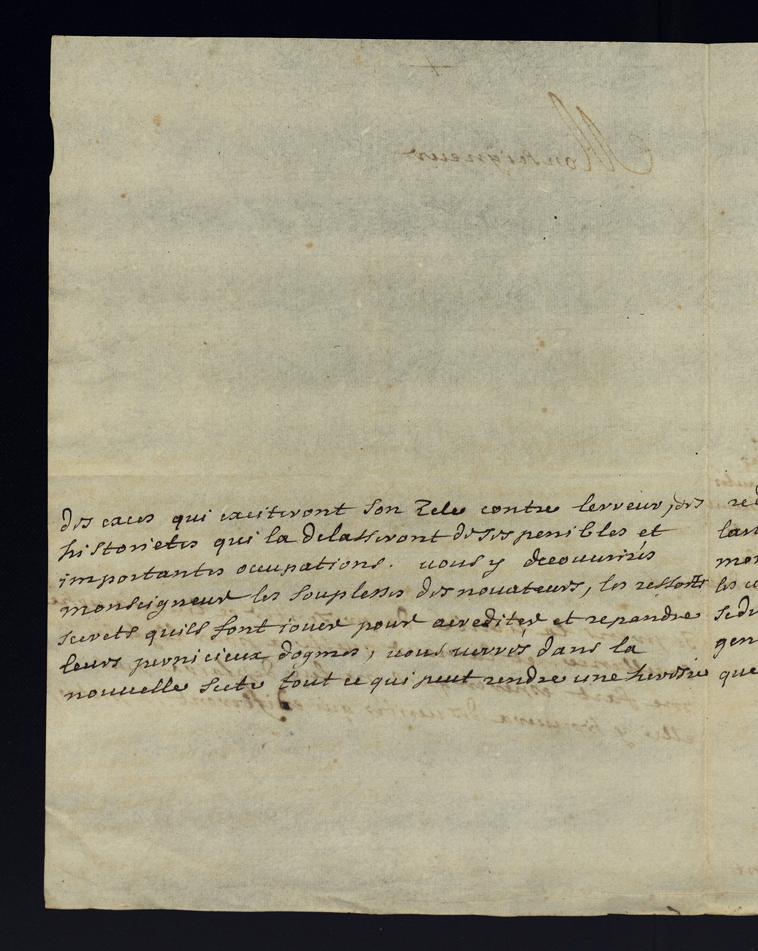 Monseigneur
des exces qui exciteront son Zele contre lerreur, des
historietes qui la delasseront deses penibles et
importantes occupations. vous y decouvrires
monseigneur les souplesses des novateurs, les ressorts
secrets quils font iouer pour acrediter et repandre
leurs pernicieux dogmes, vous verrés dans la
nouvelle secte tout ce qui peut rendre une heresie
mon
que